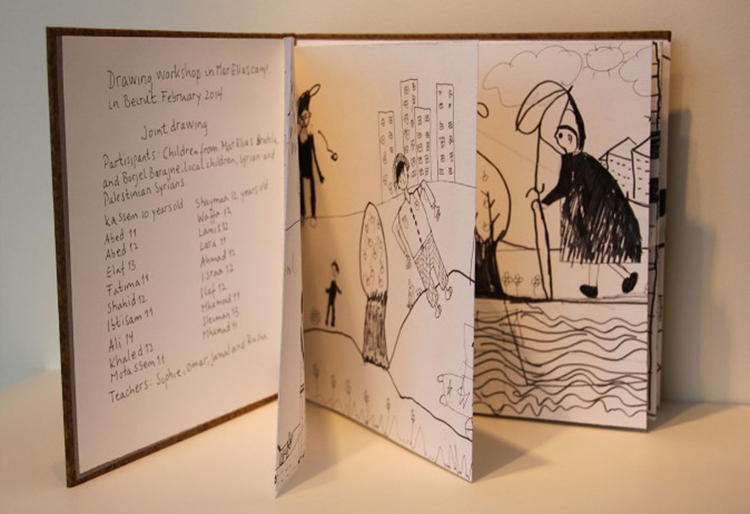 Drawing workshop in Mar Elias camp,
in Beirut February 2014
Joint drawing
Participants: Children from Mar Elias
and Borjel Barajne. local children, Syrian and
Palestinian Syrians.
Kassem 10 years old
Abed 11
Abed 12
Elaf 13
Fatima 11
Shahid 12
Ibtisam 11
Ali 14
Khaled 12
Motassem 11
Shayman 12 years old
Waffa 12
Lamis 12
Lara 11
Ahmad 12
Israa 12
Ilaf 12
Mhamad 11
Sleiman 13
Mhamad 11
Teachers: Sophie, Omar, Jamal and Rasha